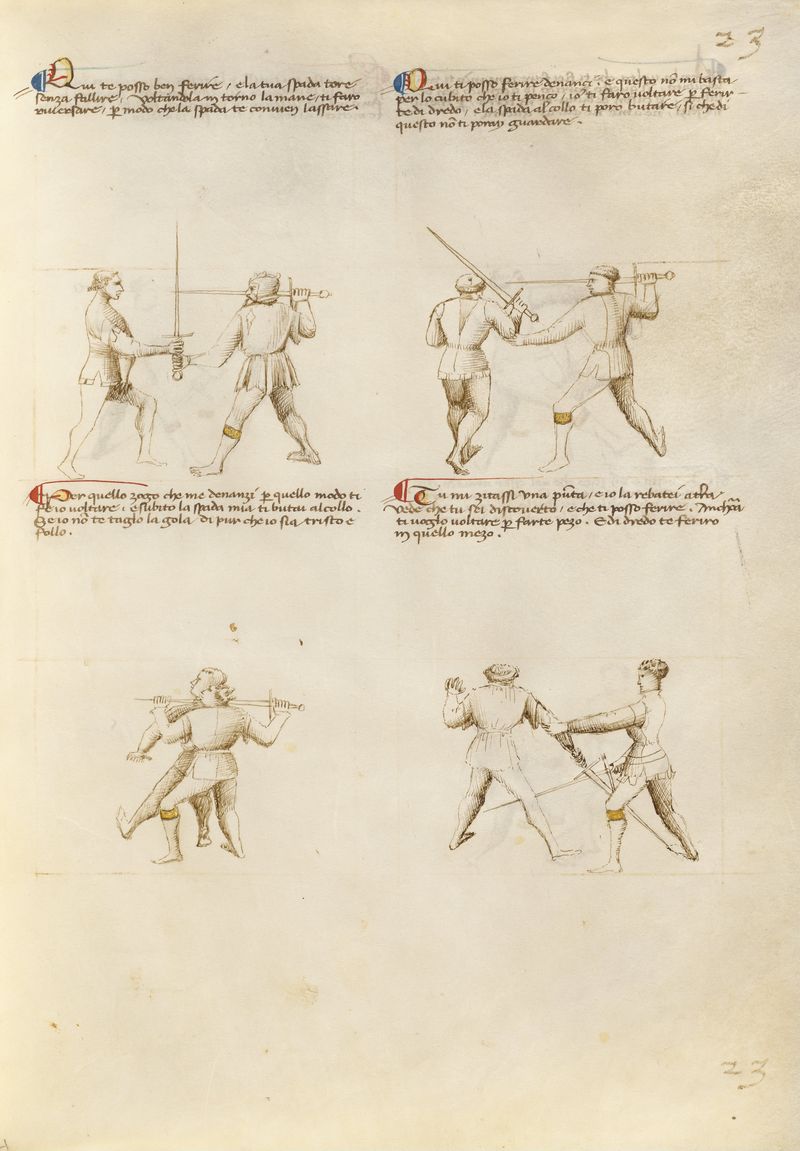 23
Qui te posso ben ferire / e la tua spada tore
senza fallire / voltandola in torno la mane / ti faro
riuersare / p modo che la spada te conuien lassare.
Qui ti posso ferire denanci. e questo nō mi basta
per lo cubito che io ti penço / io ti faro uoltare p ferir-
te di dredo / e la spada al collo ti poro butare / si che di
questo nō ti poray guardare.
Per quello zogo che me denanzi p quello modo ti
fe io uoltare. e subito la spada mia ti butai al collo.
Se io nō te taglo la gola di pur che io sia tristo e
follo.
Tu mi zitassi una pūta / e io la rebatei a tr̄a
Vede che tu sei discouerto / e che ti posso ferire. Anchā
ti uoglo uoltare p farte pezo. E di dredo te feriro
in quello mezo.
23